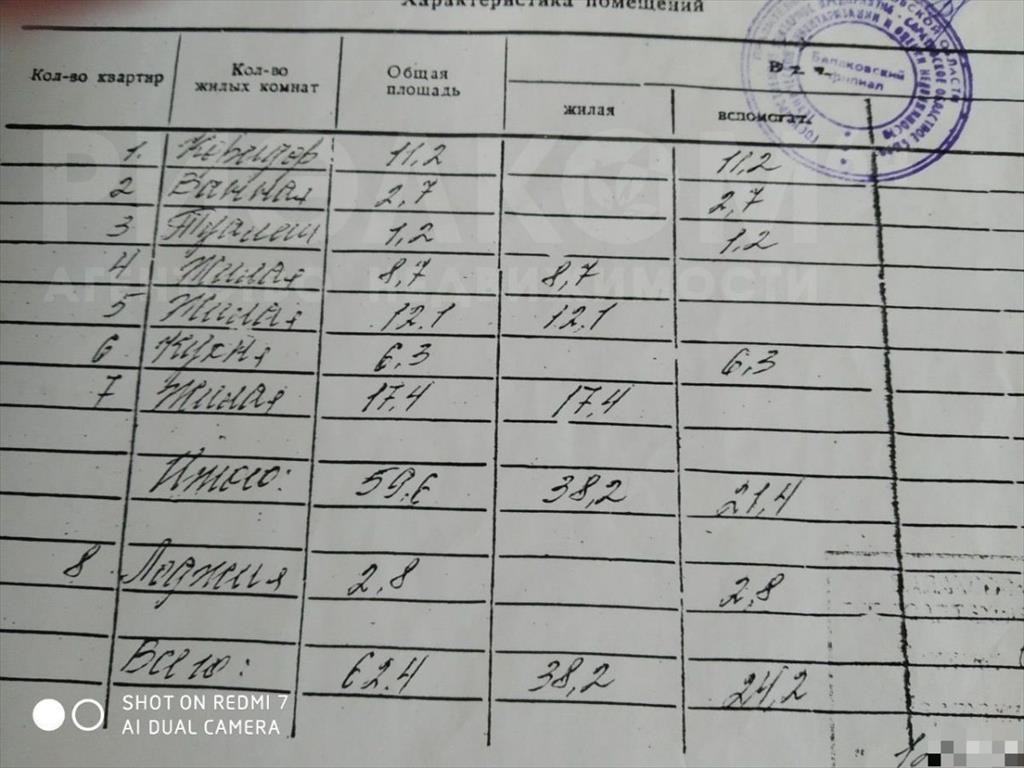 Характеристика помещений
Кол-во квартир Кол-во жилых комнат Общая площадь В т. ч.
жилая вспомогат.
1. Коридор 11,2 11,2
2 Ванная 2,7 2,7
3 Туалет 1,2 1,2
4 Жилая 8,7 8,7
5 Жилая 12.1 12,1
6 Кухня 6,3 6,3
7 Жилая 17.4 17,4
Итого: 59,6 38,2 21,4
8 Лоджия 2,8 2,8
Всего: 62.4 38,2 24,2
Балаковский
филиал
АГЕНТСТВО НЕДВИЖИМОСТИ
SHOT ON REDMI 7
AI DUAL CAMERA